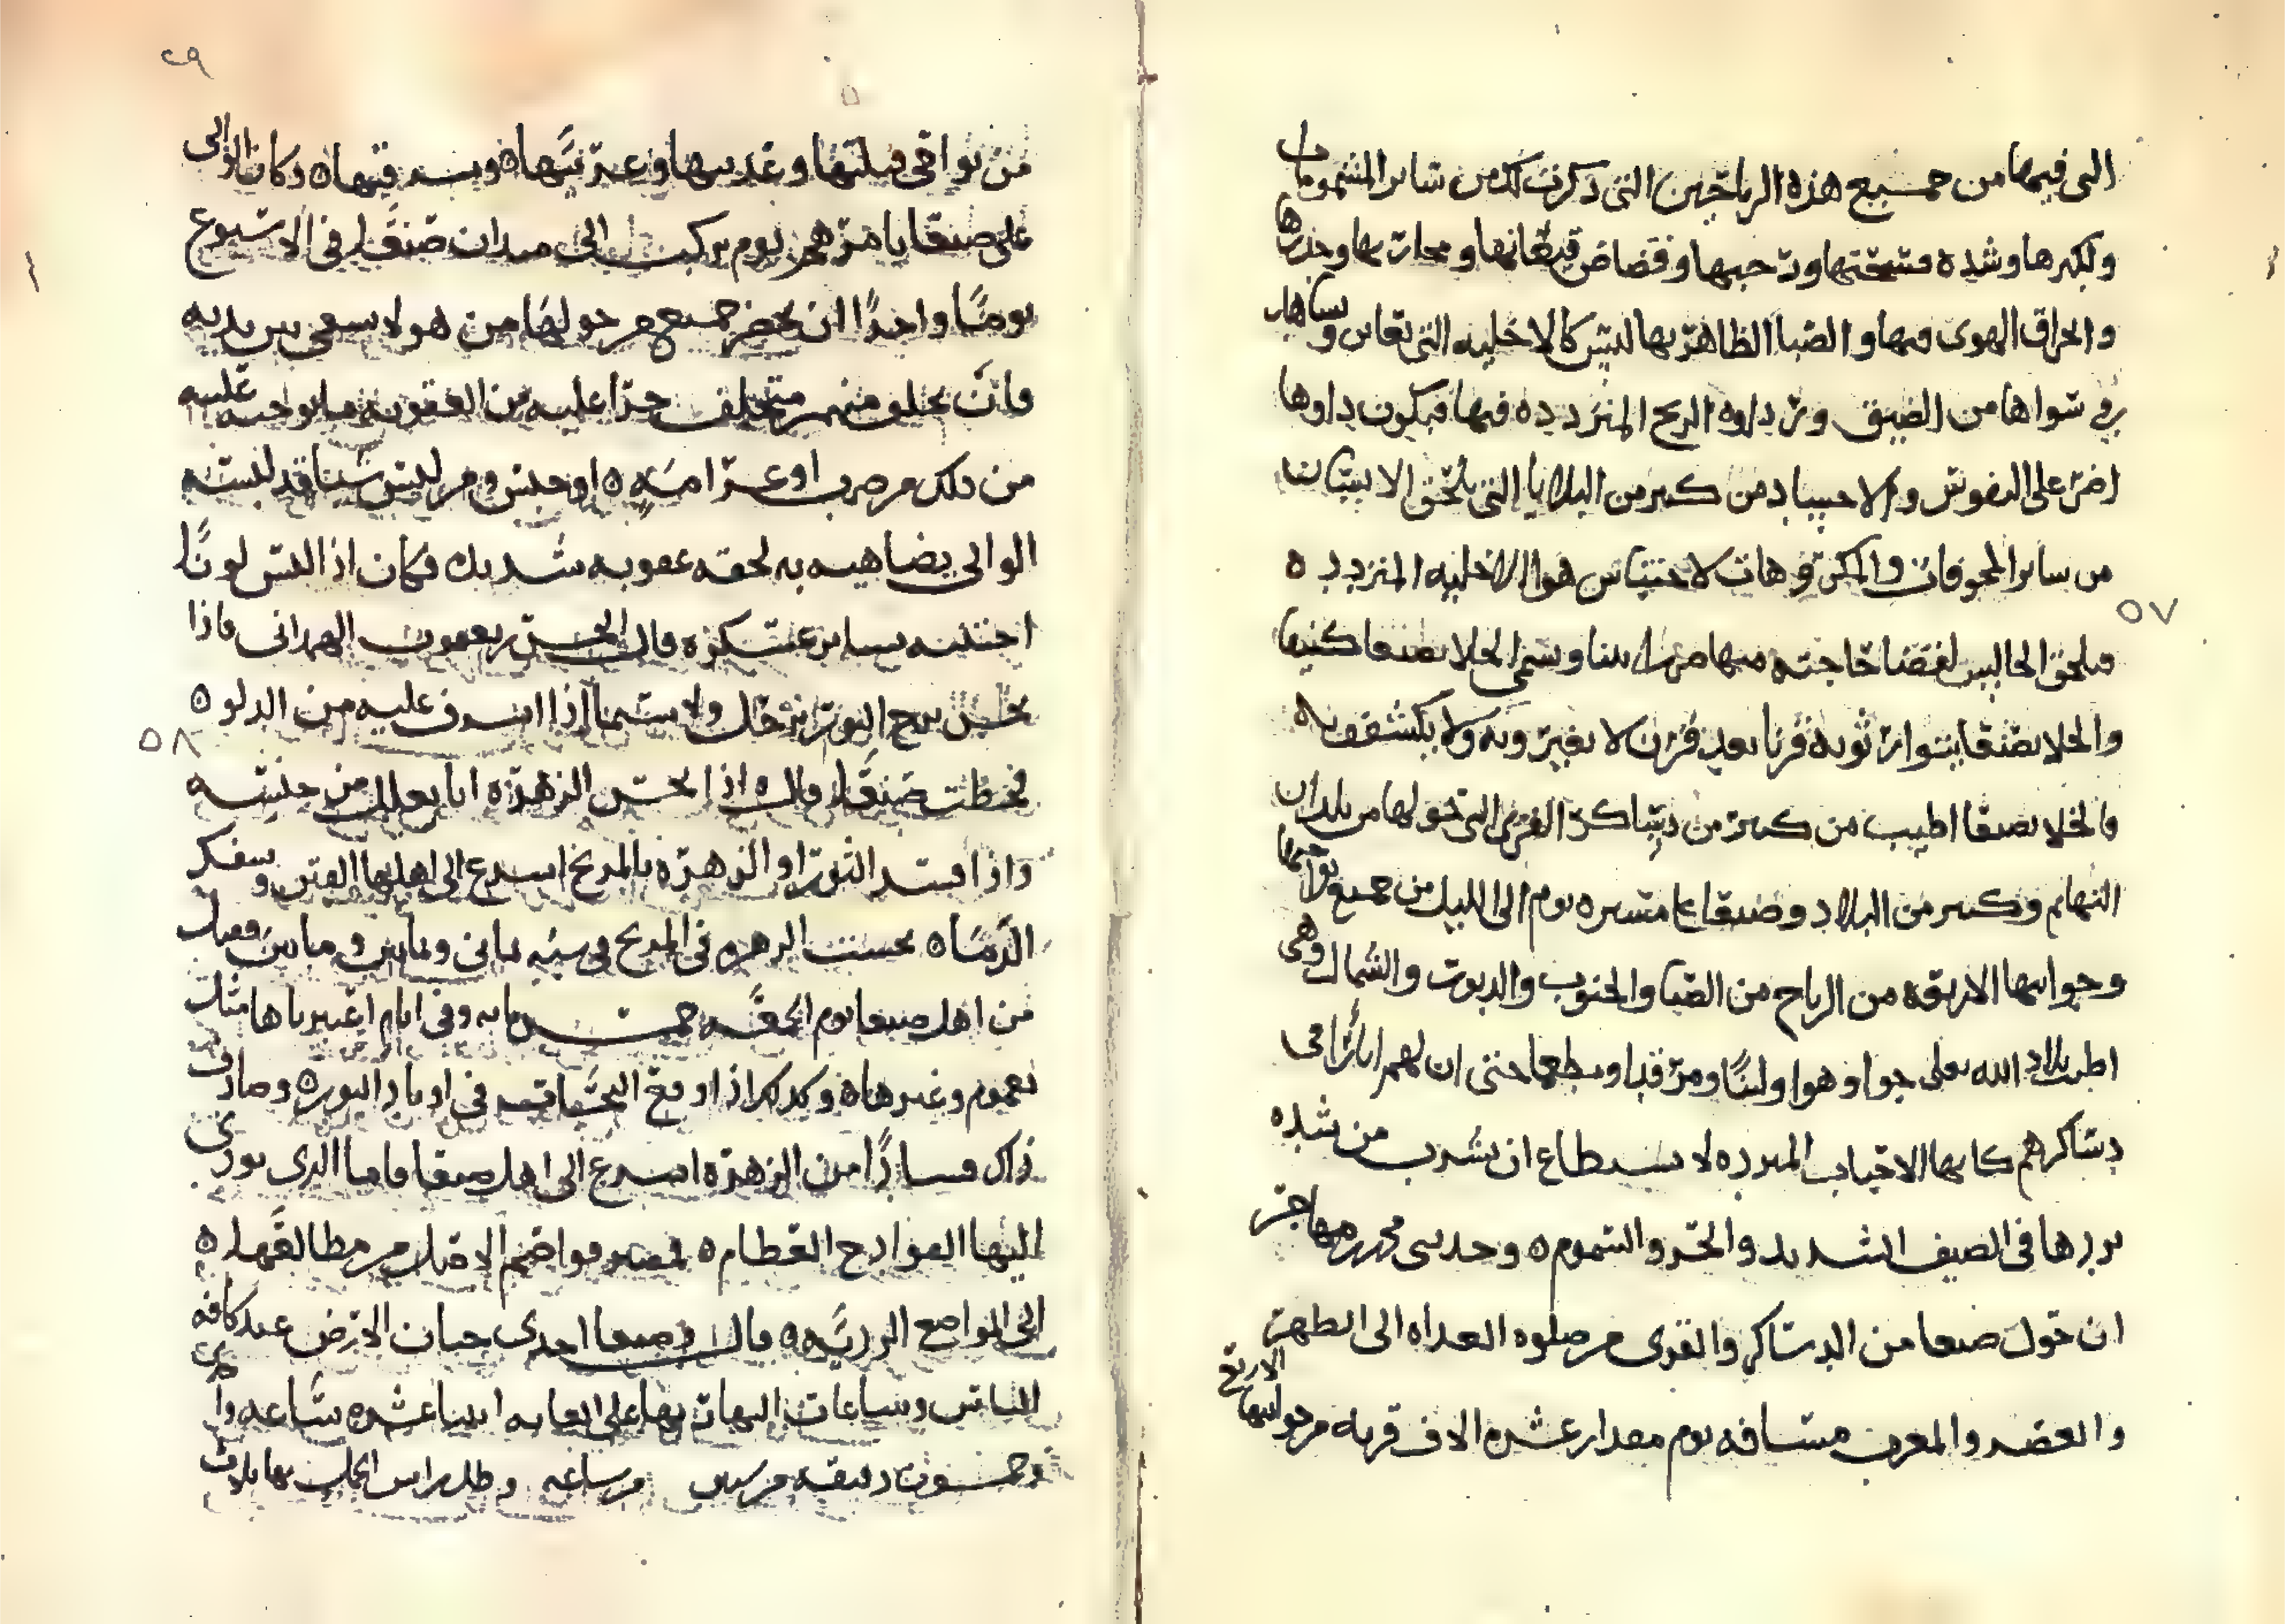 التى فيها من جميع هذه الرياحين التى ذكرت لك من سائر المشمومات
ولكبرها وشده
والحراق الهوى فيها والضيا الظاهر بها ليس كالاخليه التى تقاس وساها
فى سواها من الضيق وتزداروه الريح المتردده فيها فيكون داوها
اضر على النفوس والاجساد من كثير من البلايا التى تلحق الانسان
من ساير المخوفات والمكروهات لاحتباس هوا الاخليه المتردد ٥
٥٧
فيلحق الجالس لقضا حاجته فيها ضررا بينا وسمى الخلا بصنعا كنيفا
والخلا بصنعا يتوارثونه قرنا بعد قرن لا يغيرونه ولا يكشفونه
فالخلا بصنعا اطيب من كثير من دساكر القرى التى حولها من بلدان
التهايم وكثير من البلاد وصنعا على مسيره يوم الى الليل من جميع نواحيها
وجوانبها الاربعه من الرياح من الصبا والجنوب والدبور والشمال وهى
اطيب بلاد الله تعالى جوا وهوا ولينا ومرقدا ومطعما حتى ان لهم ابارا فى
دساكرهم كانها الاجباب المبرده لا يستطاع ان يشرب من شده
بردها فى الصيف الشديد والحر والسموم ٥ وحدثنى
ان حول صنعا من الدساكر والقرى من صلوه الغداه الى الظهر
والعصر والمغرب مسافه يوم مقدار عشره الاف قريه من جوانبها الاربع
٢٩
من نواحى قبلتها وعدنيها وغربيها ٥ وشرقيها ٥ وكان الوالى
على صنعا يامرهم يوم يركب الى ميدان صنعا فى الاسبوع
يوما واحدا ان يحضر جميع من حولها من هولا يسعى بين يديه
فان تخلف منهم متخلف جرا عليه من العقوبه ما يوجبه عليه
من ذلك من ضرب او غرامه ٥ او حبس ومن لبس شيا قد لبسه
الوالى يضاهيه به لحقه عقوبه شديده فكان اذا لبس لونا
اجتنبه ساير عسكره قال الحسن بن يعقوب الهمدانى فاذا
نحس برج الثور بزحل ولا سيما اذا اشرف عليه من الدلو ٥
٥٨
قحطت صنعا قال ٥ واذا نحس الزهره اتا بعلل من جنسه
واذا فسد الثور او الزهره بالمريخ اسرع الى اهلها الفتن وسفك
الدماه نحست الزهره فى المريخ فى سنه ثمانى وثمانين ومايتين فقتل
من اهل صنعا يوم الجمعه خمس مايه وفى ايام اغير باها مثل
نعموم وغيرها ٥ وكذلك اذا وقع النحسان فى اوتاد الثور ٥ وصادف
ذلك فسادا من الزهره اسرع الى اهل صنعا فاما الذى يودى
اليها الفوادح العظام ٥ فمصير مواضع الاصل من مطالعها ٥
الى المواضع الرديه ٥ قال وصنعا احدى جنان الارض عند كافه
الناس وساعات النهار بها على الغايه اثنا عشره ساعه
وخمسون دقيقه من ستين من ساعه وظل راس الحمل بها ثلاث